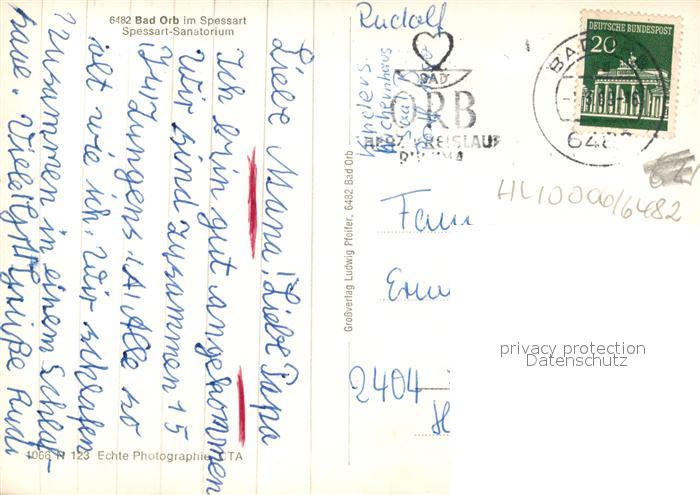 6482 Bad Orb im Spessart
Spessart-Sanatorium
Liebe Mama! Liebe Papa
Ich bin gut angekommen
Wir sind zusammen 15
Jungens. Alle so
alt wie ich. Wir schlafen
zusammen in einem Schlaf-
Viele Grüße Rudi
1066 N 123 Echte Photographie CTA
Großverlag Ludwig Pfeifer, 6482 Bad Orb
Rudolf
Kinders.
BAD
ORB
HERZ KREISLAUF
RHEUMA
DEUTSCHE BUNDESPOST
20
BAD
HL10000/6482
Fam
2404
privacy protection
Datenschutz